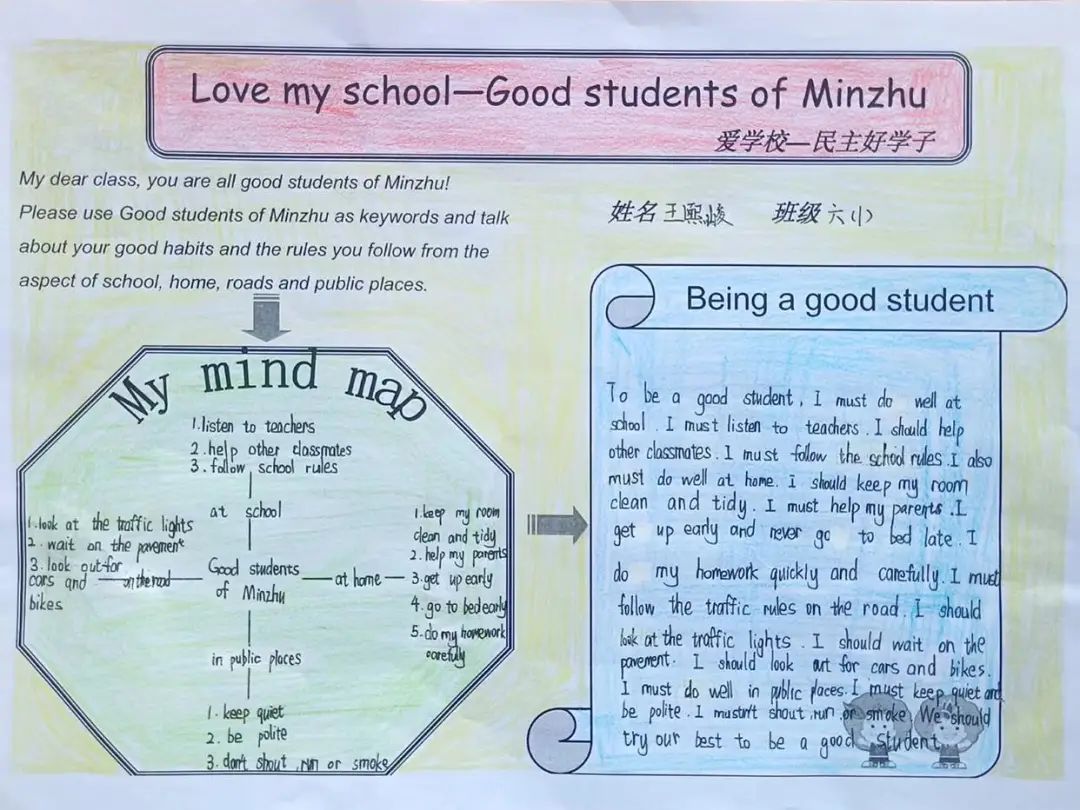 Love my school—Good students of Minzhu
爱学校—民主好学子
My dear class, you are all good students of Minzhu!
Please use Good students of Minzhu as keywords and talk
about your good habits and the rules you follow from the
aspect of school, home, roads and public places.
姓名 王熙峻 班级 六(小)
My mind map
1.listen to teachers
2.help other classmates
3.follow school rules
at school
1.look at the traffic lights
2.wait on the pavement
3.look out for
cars and
bikes
on the road
Good students
of Minzhu
at home
1.keep my room
clean and tidy
2.help my parents
3.get up early
4.go to bed early
5.do my homework
carefully
in public places
1.keep quiet
2.be polite
3.don't shout ,run or smoke
Being a good student
To be a good student, I must do well at
school. I must listen to teachers. I should help
other classmates. I must follow the school rules. I also
must do well at home. I should keep my room
clean and tidy. I must help my parents. I
get up early and never go to bed late. I
do my homework quickly and carefully. I must
follow the traffic rules on the road. I should
look at the traffic lights. I should wait on the
pavement. I should look out for cars and bikes.
I must do well in public places. I must keep quiet and
be polite. I mustn't shout ,run ,or smoke. We should
try our best to be a good student.